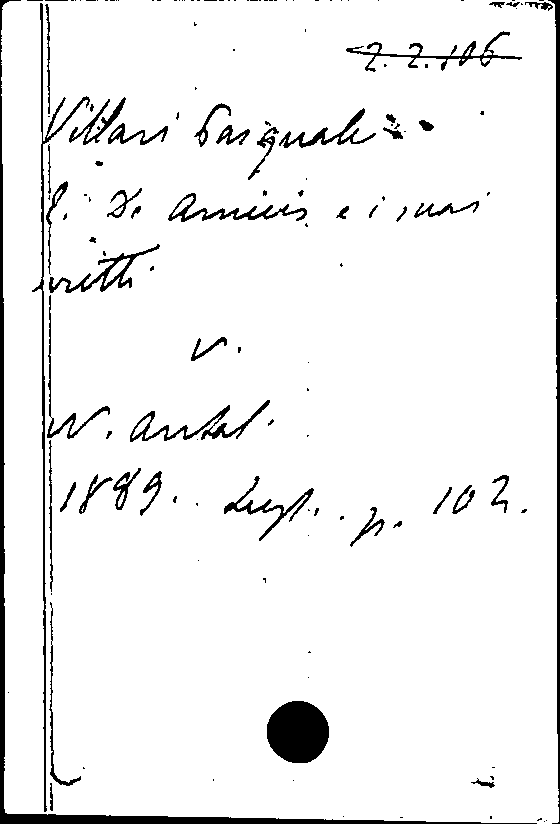 2.2.106
Villari Pasquale
E. De Amicis e i suoi
scritti
v.
N. Antol.
1889. Lugl. p. 102.